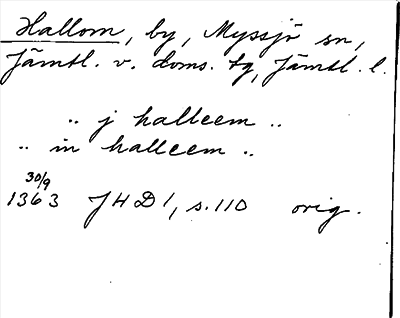 Hallom, by, Myssjö sn,
Jämtl. v. doms. tg, Jämtl. l.
.. j halleem ..
.. in halleem ..
30/9
1363 JHD 1, s. 110 orig.